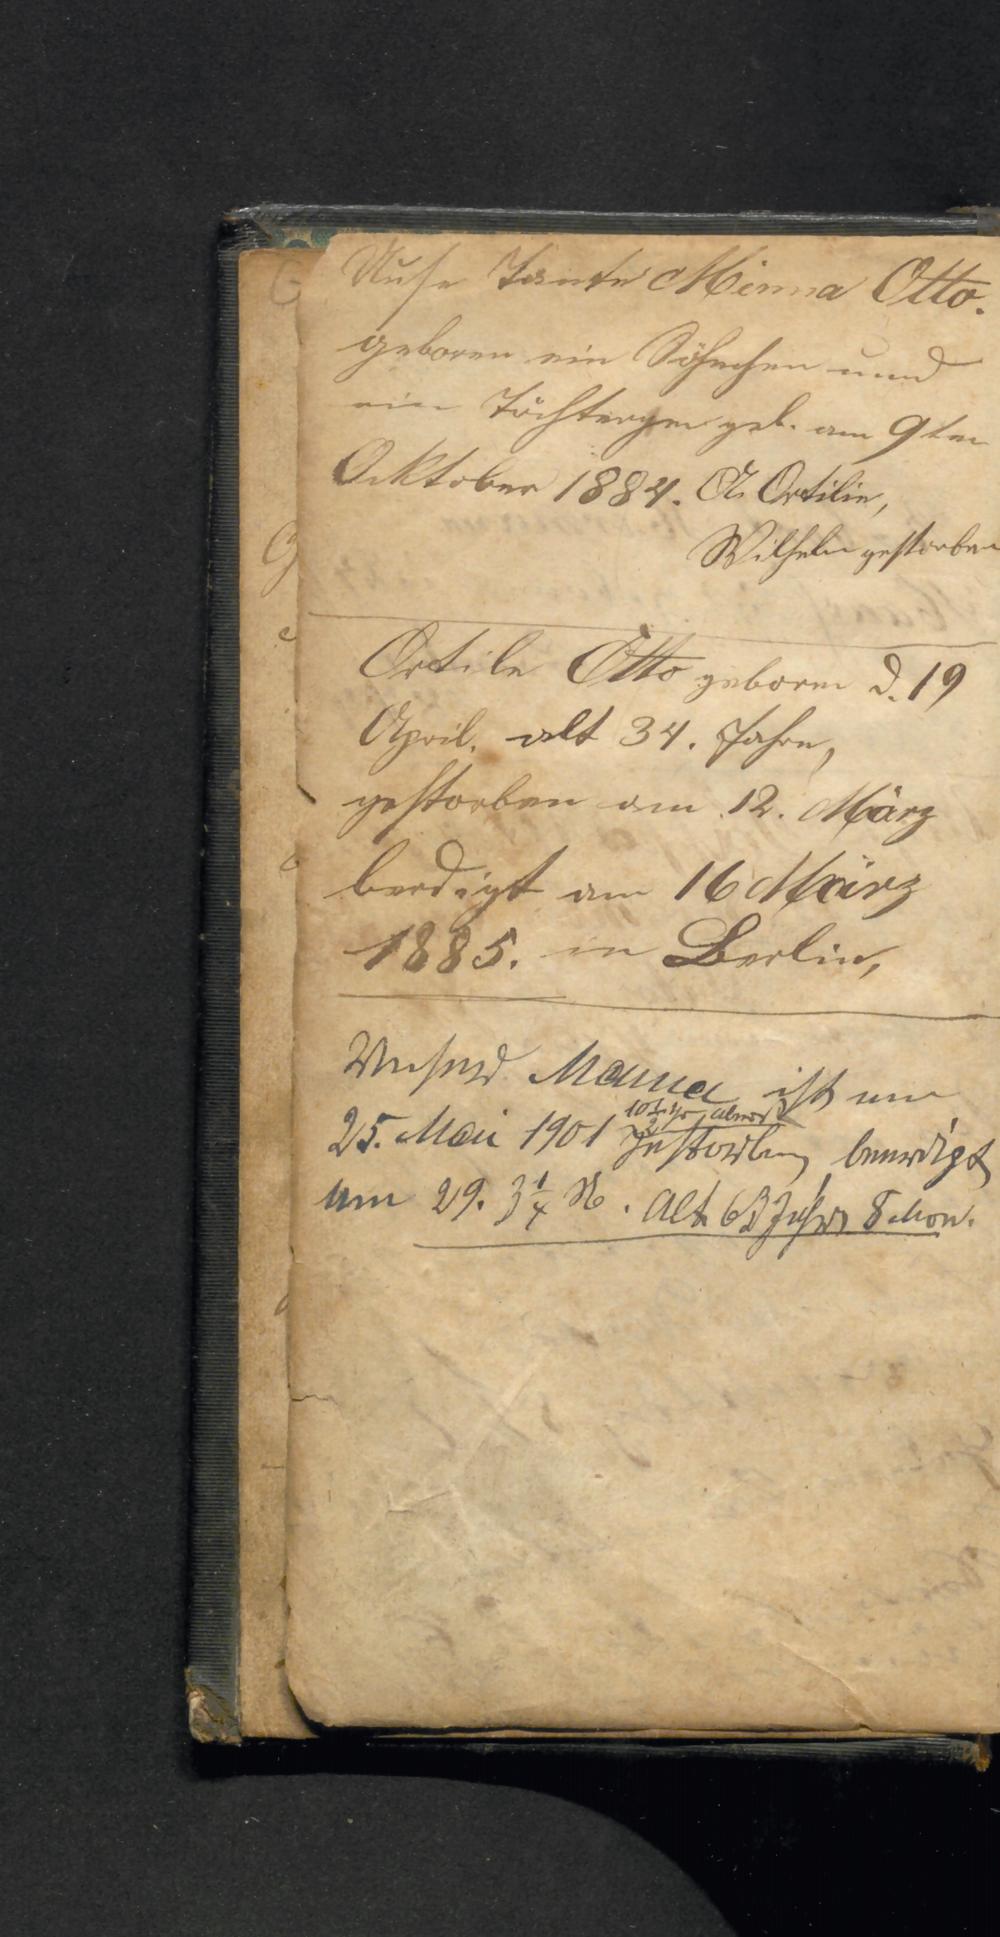 Unse Tante Minna Otto.
geboren ein Söhnchen und
ein Töchtergen geb. am 9ten
Ocktober 1884. Ortilie,
Wilhelm gestorben
Ortile Otto geboren d. 19
April. alt 34. Jahre,
gestorben am 12. März
berdigt am 16 März
1885. in Berlin,
Unsere Mama ist am
10½ Uhr abends
25. Mai 1901 gestorben beerdigt
am 29. 3¼ N. Alt 63 Jahre 8 Mon.